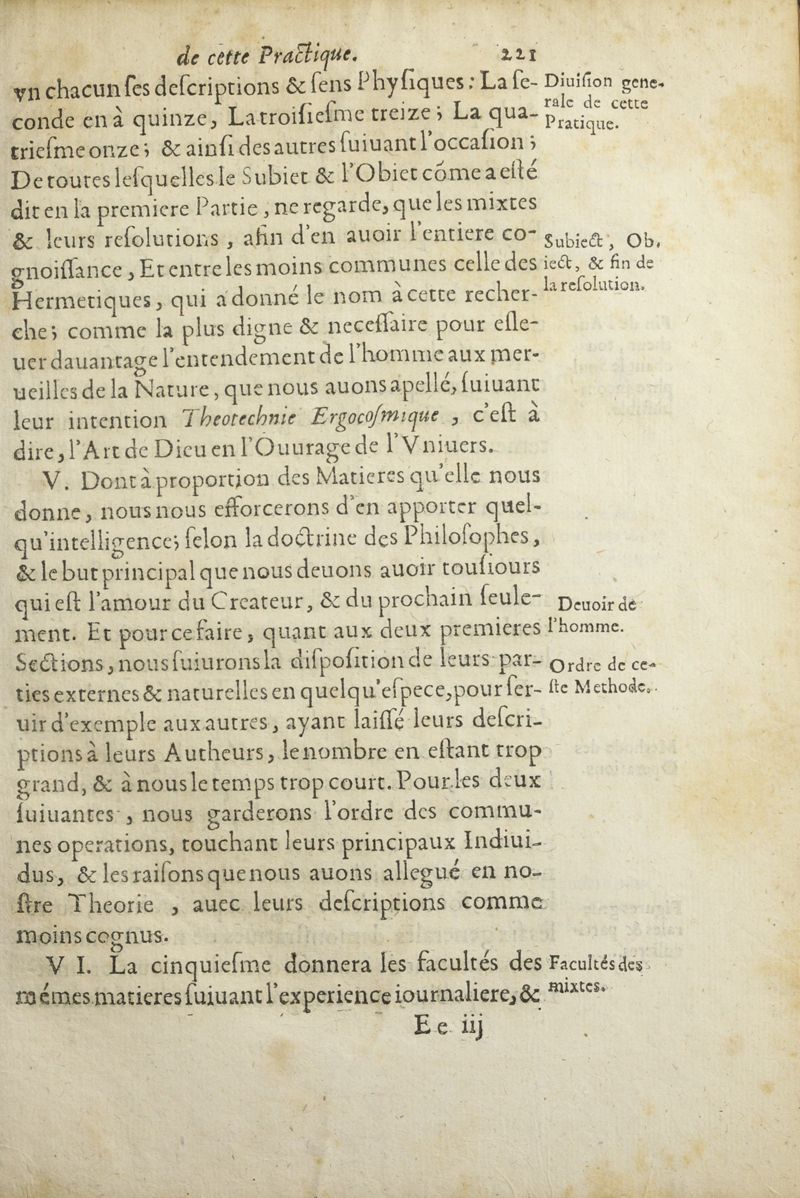 de cette Practique. 221
vn chacun ſes deſcriptions & ſens Phyſiques : La ſe-
conde en à quinze, La troiſieſme treize ; La qua-
trieſme onze ; & ainſi des autres ſuiuant l'occaſion ;
De toutes leſquelles le Subiet & l'Obiet cõme a eſté
dit en la premiere Partie, ne regarde, que les mixtes
& leurs reſolutions, afin d'en auoir l'entiere co-
gnoiſſance, Et entre les moins communes celle des
Hermetiques, qui a donné le nom à cette recher-
che ; comme la plus digne & neceſſaire pour eſle-
uer dauantage l'entendement de l'homme aux mer-
ueilles de la Nature, que nous auons apellé, ſuiuant
leur intention Theotechnie Ergocoſmique, c'eſt à
dire, l'Art de Dieu en l'Ouurage de l'Vniuers.
V. Dont à proportion des Matieres qu'elle nous
donne, nous nous efforcerons d'en apporter quel-
qu'intelligence ; ſelon la doctrine des Philoſophes,
& le but principal que nous deuons auoir touſiours
qui eſt l'amour du Createur, & du prochain ſeule-
ment. Et pour ce faire, quant aux deux premieres
Sections, nous ſuiurons la diſpoſition de leurs par-
ties externes & naturelles en quelqu'eſpece, pour ſer-
uir d'exemple aux autres, ayant laiſſé leurs deſcri-
ptions à leurs Autheurs, le nombre en eſtant trop
grand, & à nous le temps trop court. Pour les deux
ſuiuantes, nous garderons l'ordre des commu-
nes operations, touchant leurs principaux Indiui-
dus, & les raiſons que nous auons allegué en no-
ſtre Theorie, auec leurs deſcriptions comme
moins cognus.
V I. La cinquieſme donnera les facultés des
mémes matieres ſuiuant l'experience iournaliere, &
E e iij
Diuiſion gene-
rale de cette
Pratique.
Subiect, Ob,
iect, & fin de
la reſolution.
Deuoir de
l'homme.
Ordre de ce-
ſte Methode.
Facultés des
mixtes.